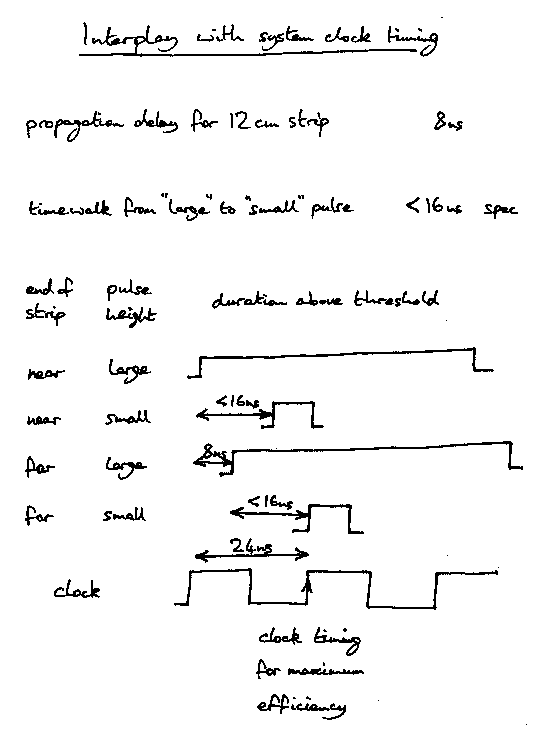 Interplay with system clock timing
propagation delay for 12 cm strip 8ns
timewalk from "large" to "small" pulse <16ns spec
end of pulse duration above threshold
strip height
near large
near small <16ns
far large 8ns
far small <16ns
24ns
clock
clock timing
for maximum
efficiency